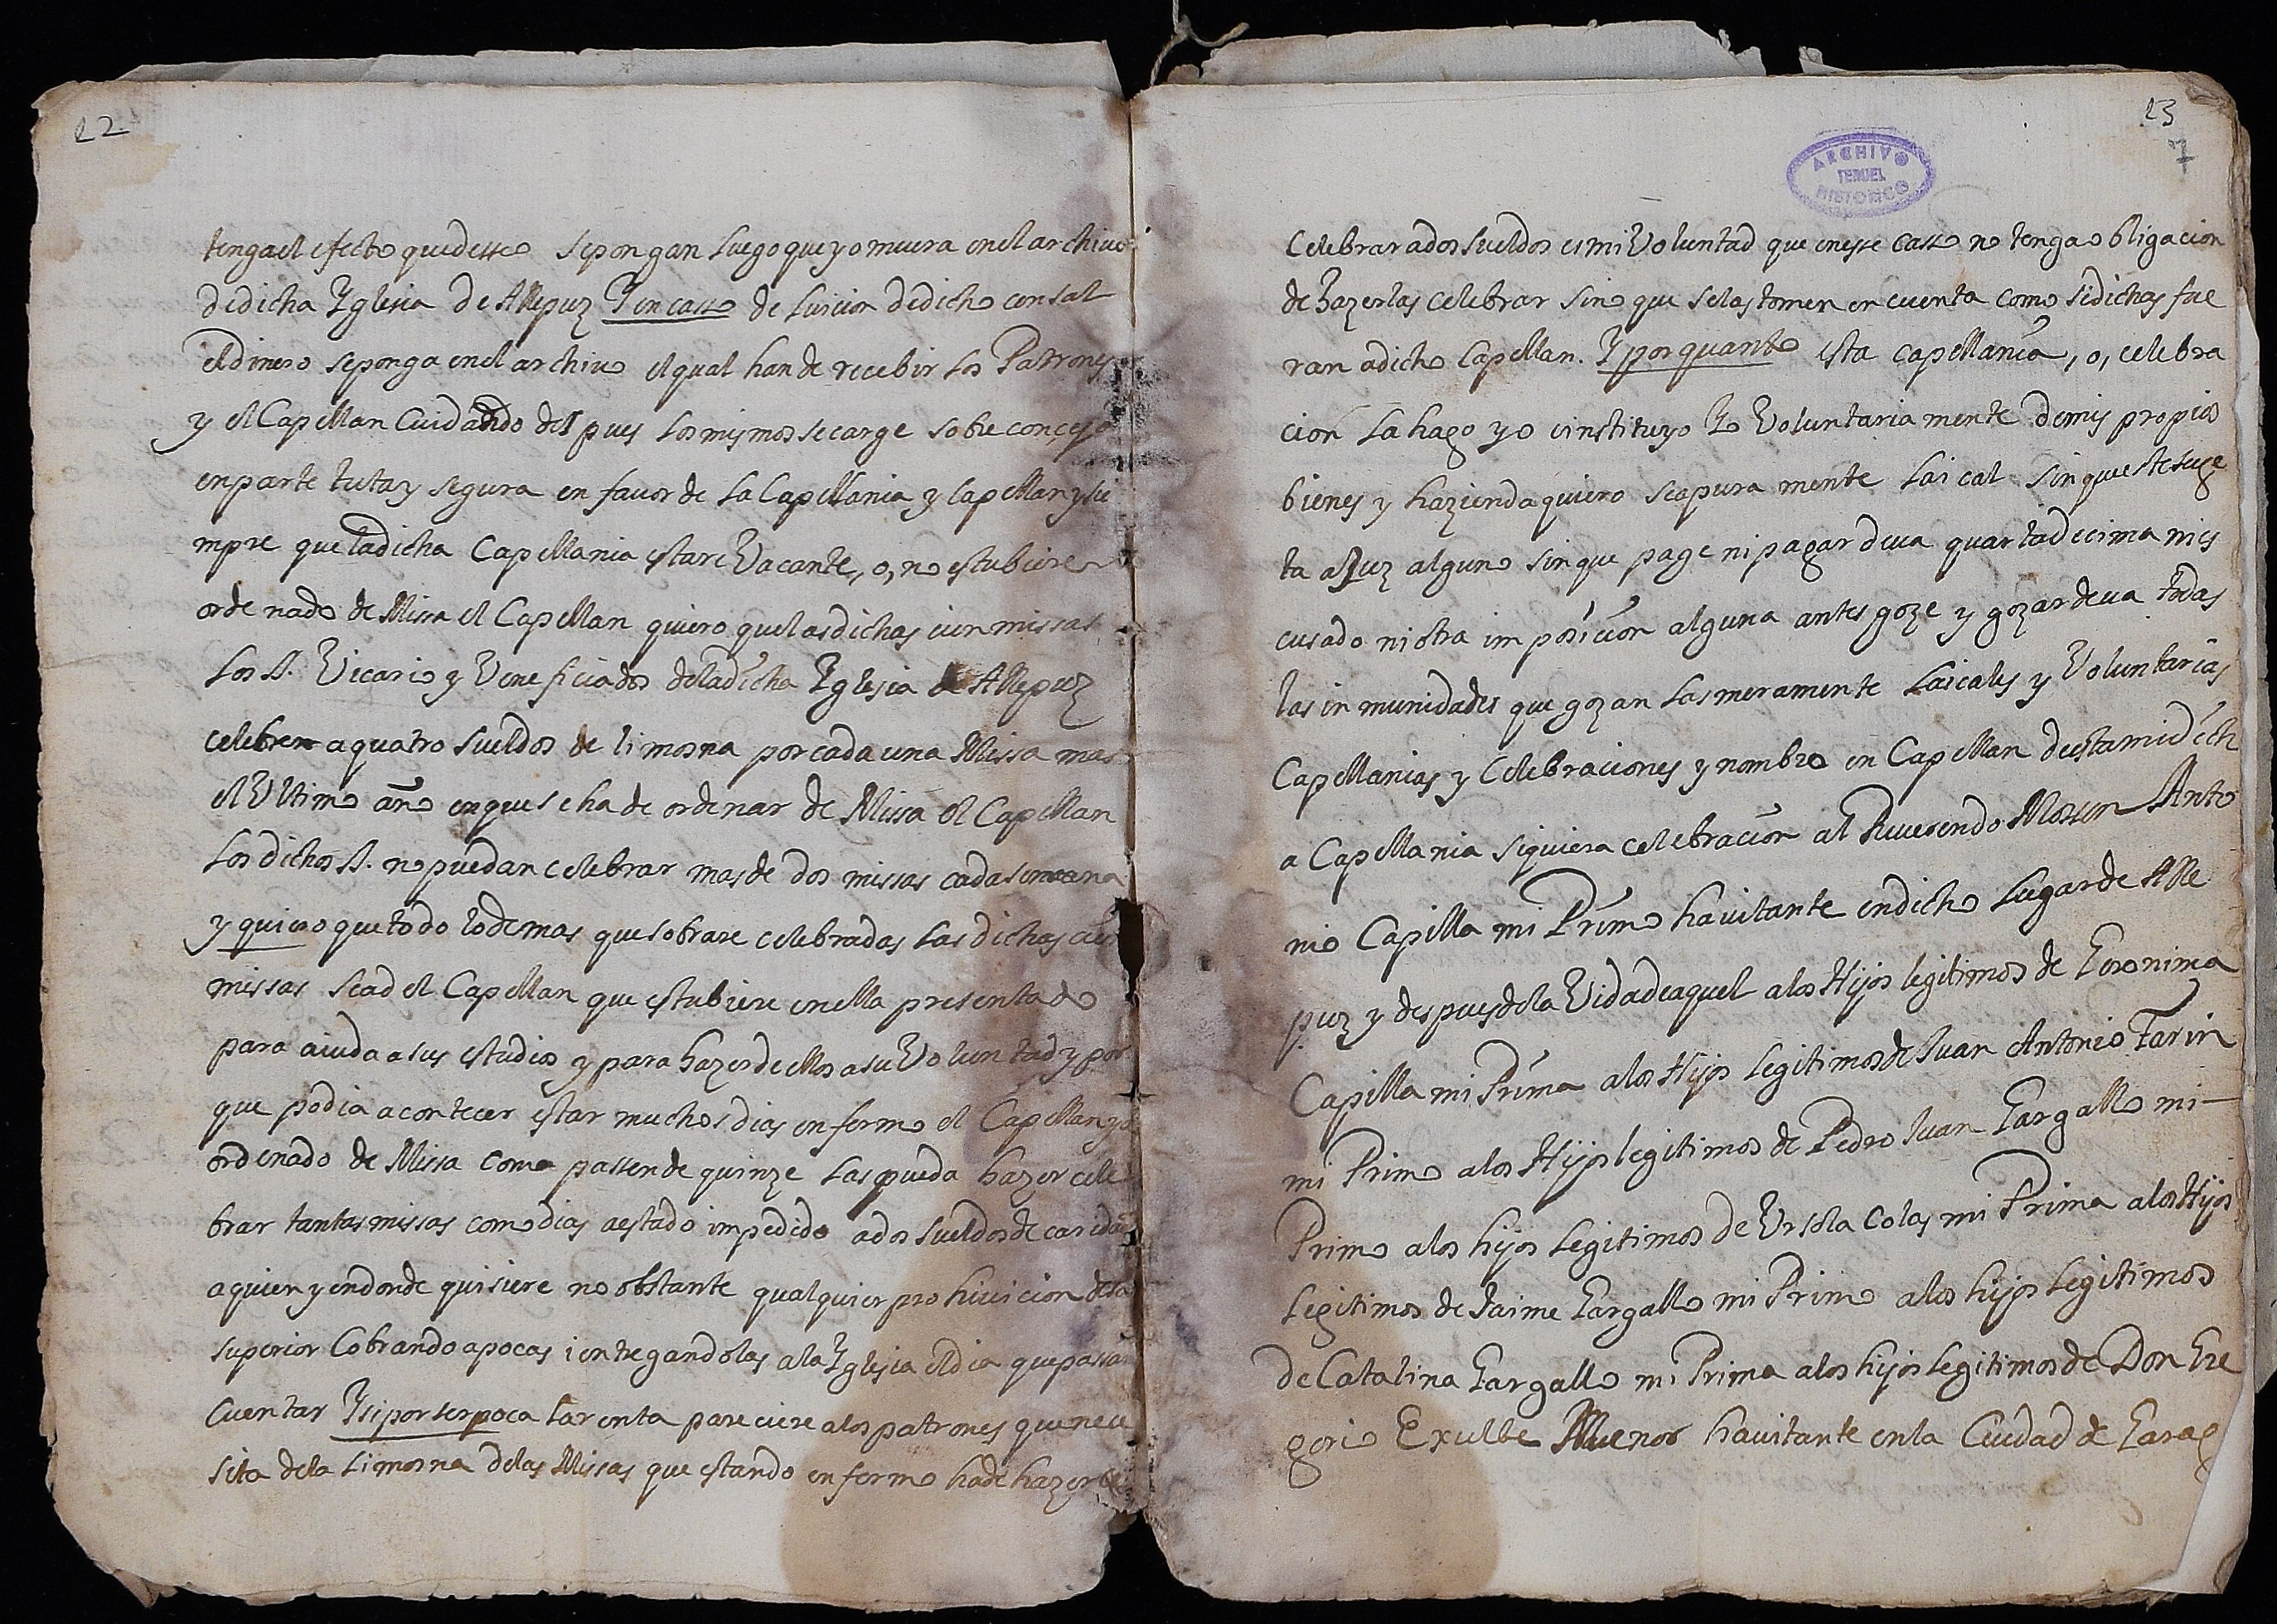 22
tenga el efecto que desseo se pongan luego que yo muera en el archivo
de dicha Yglesia de Allepuz Y en casso de luicion de dicho consal
el dinero se ponga en el archivo el qual han de recebir los Patrones
y el Capellan Cuidando des pues los mismos se carge sobre concejo
en parte tuta y segura en favor de la Capellania y Capellan y sie
mpre que la dicha Capellania estare Vacante, o, no estubiere
orde nado de Missa el Capellan quiero que las dichas cien missas
los S.s Vicario y Vene ficiados de la dicha Yglesia de Allepuz
celebren a quatro sueldos de limosna por cada una Missa mas
el Ultimo año en que se ha de ordenar de Missa el Capellan
los dichos S.s no puedan celebrar mas de dos missas cada semana
y quiero que todo lo demas que sobrare celebradas las dichas cien
missas sea del Capellan que estubiere en ella presentado
para aiuda a sus estudios y para hazer de ellos a su Voluntad y por
que podia acontecer estar muchos dias enfermo el Capellan ya
ordenado de Missa como passen de quinze las pueda hazer cele
brar tantas missas como dias a estado impedido a dos sueldos de caridad
a quien y en donde quisiere no obstante qualquier pro hivicion de su
superior Cobrando apocas i entregandolas a la Yglesia el dia que passan
Cuentas Y si por ser poca la renta pareciere a los patrones que nece
sita de la Limosna de las Missas que estando enfermo ha de hazer ce
23
7
ARCHIVO
TERUEL
HISTORICO
Celebrar a dos sueldos es mi Voluntad que en esse casso no tenga obligacion
de hazerlas celebrar sino que se las tomen en cuenta como si dichas fue
ran a dicho Capellan. Y por quanto esta capellania, o, celebra
cion la hago yo e instituyo Yo Voluntaria mente de mis propios
bienes y hazienda quiero sea pura mente laical sin que este suge
ta a Juez alguno sin que page ni pagar deva quarta decima ni es
cusado ni otra imposicion alguna antes goze y gozar deva todas
las in munidades que gozan las meramente Laicales y Voluntarias
Capellanias y Celebraciones y nombro en Capellan de esta mi dich
a Capellania siquiera celebracion al Reverendo Mossen Anto
nio Capilla mi Primo havitante en dicho Lugar de Alle
puz y despues de la Vida de aquel a los Hijos legitimos de Geronima
Capilla mi Prima a los Hijos legitimos de Juan Antonio Tarin
mi Primo a los Hijos legitimos de Pedro Juan Gargallo mi
Primo a los hijos Legitimos de Ursola Colas mi Prima a los Hijos
Legitimos de Jaime Gargallo mi Primo a los hijos legitimos
de Catalina Gargallo mi Prima a los hijos legitimos de Don Gre
gorio Exulbe Menor havitante en la Ciudad de Zarag